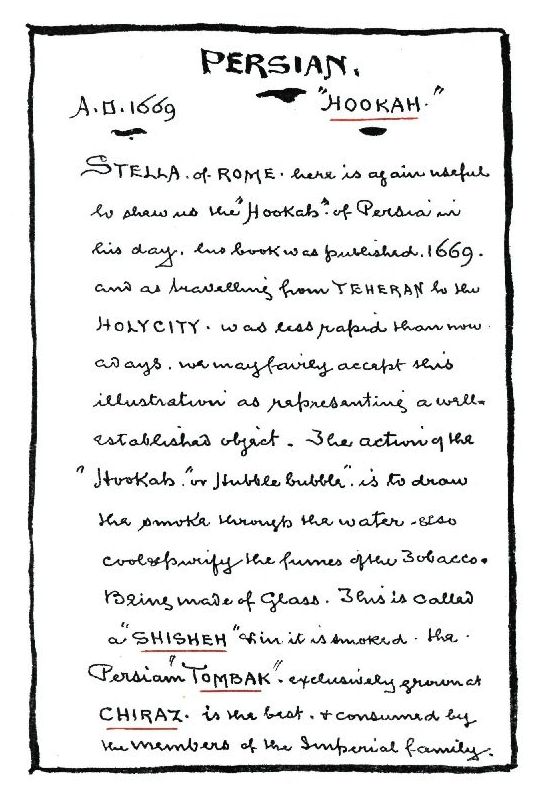 PERSIAN.
A.D.1669
"HOOKAH."
STELLA. of ROME. here is again useful
to shew us the "Hookah". of Persia in
his day. his book was published. 1669.
and as travelling from TEHERAN to the
HOLY CITY. was less rapid than now
adays. we may fairly accept this
illustration as representing a well-
established object. The action of the
"Hookah." or Hubble bubble". is to draw
the smoke through the water - & so
cool & purify the fumes of the Tobacco.
Being made of Glass. This is called
a "SHISHEH" & in it is smoked. the.
Persian "TOMBAK". exclusively grown at
CHIRAZ. is the best. & consumed by
the members of the Imperial family.